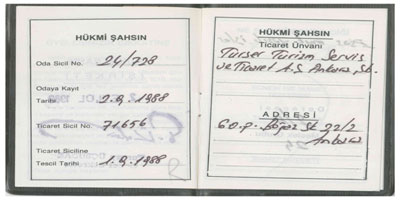 HÜKMİ ŞAHSIN
Oda Sicil No. 24/728
Odaya Kayıt
Tarihi 2.9.1988
Ticaret Sicil No: 71656
Ticaret Siciline
Tescil Tarihi 1.9.1988
HÜKMİ ŞAHSIN
Ticaret Ünvanı
Türser Turizm Servis
ve Ticaret A.Ş. Ankara Şb.
ADRESİ
G.O.P. Boğaz Sk 22/2
Ankara